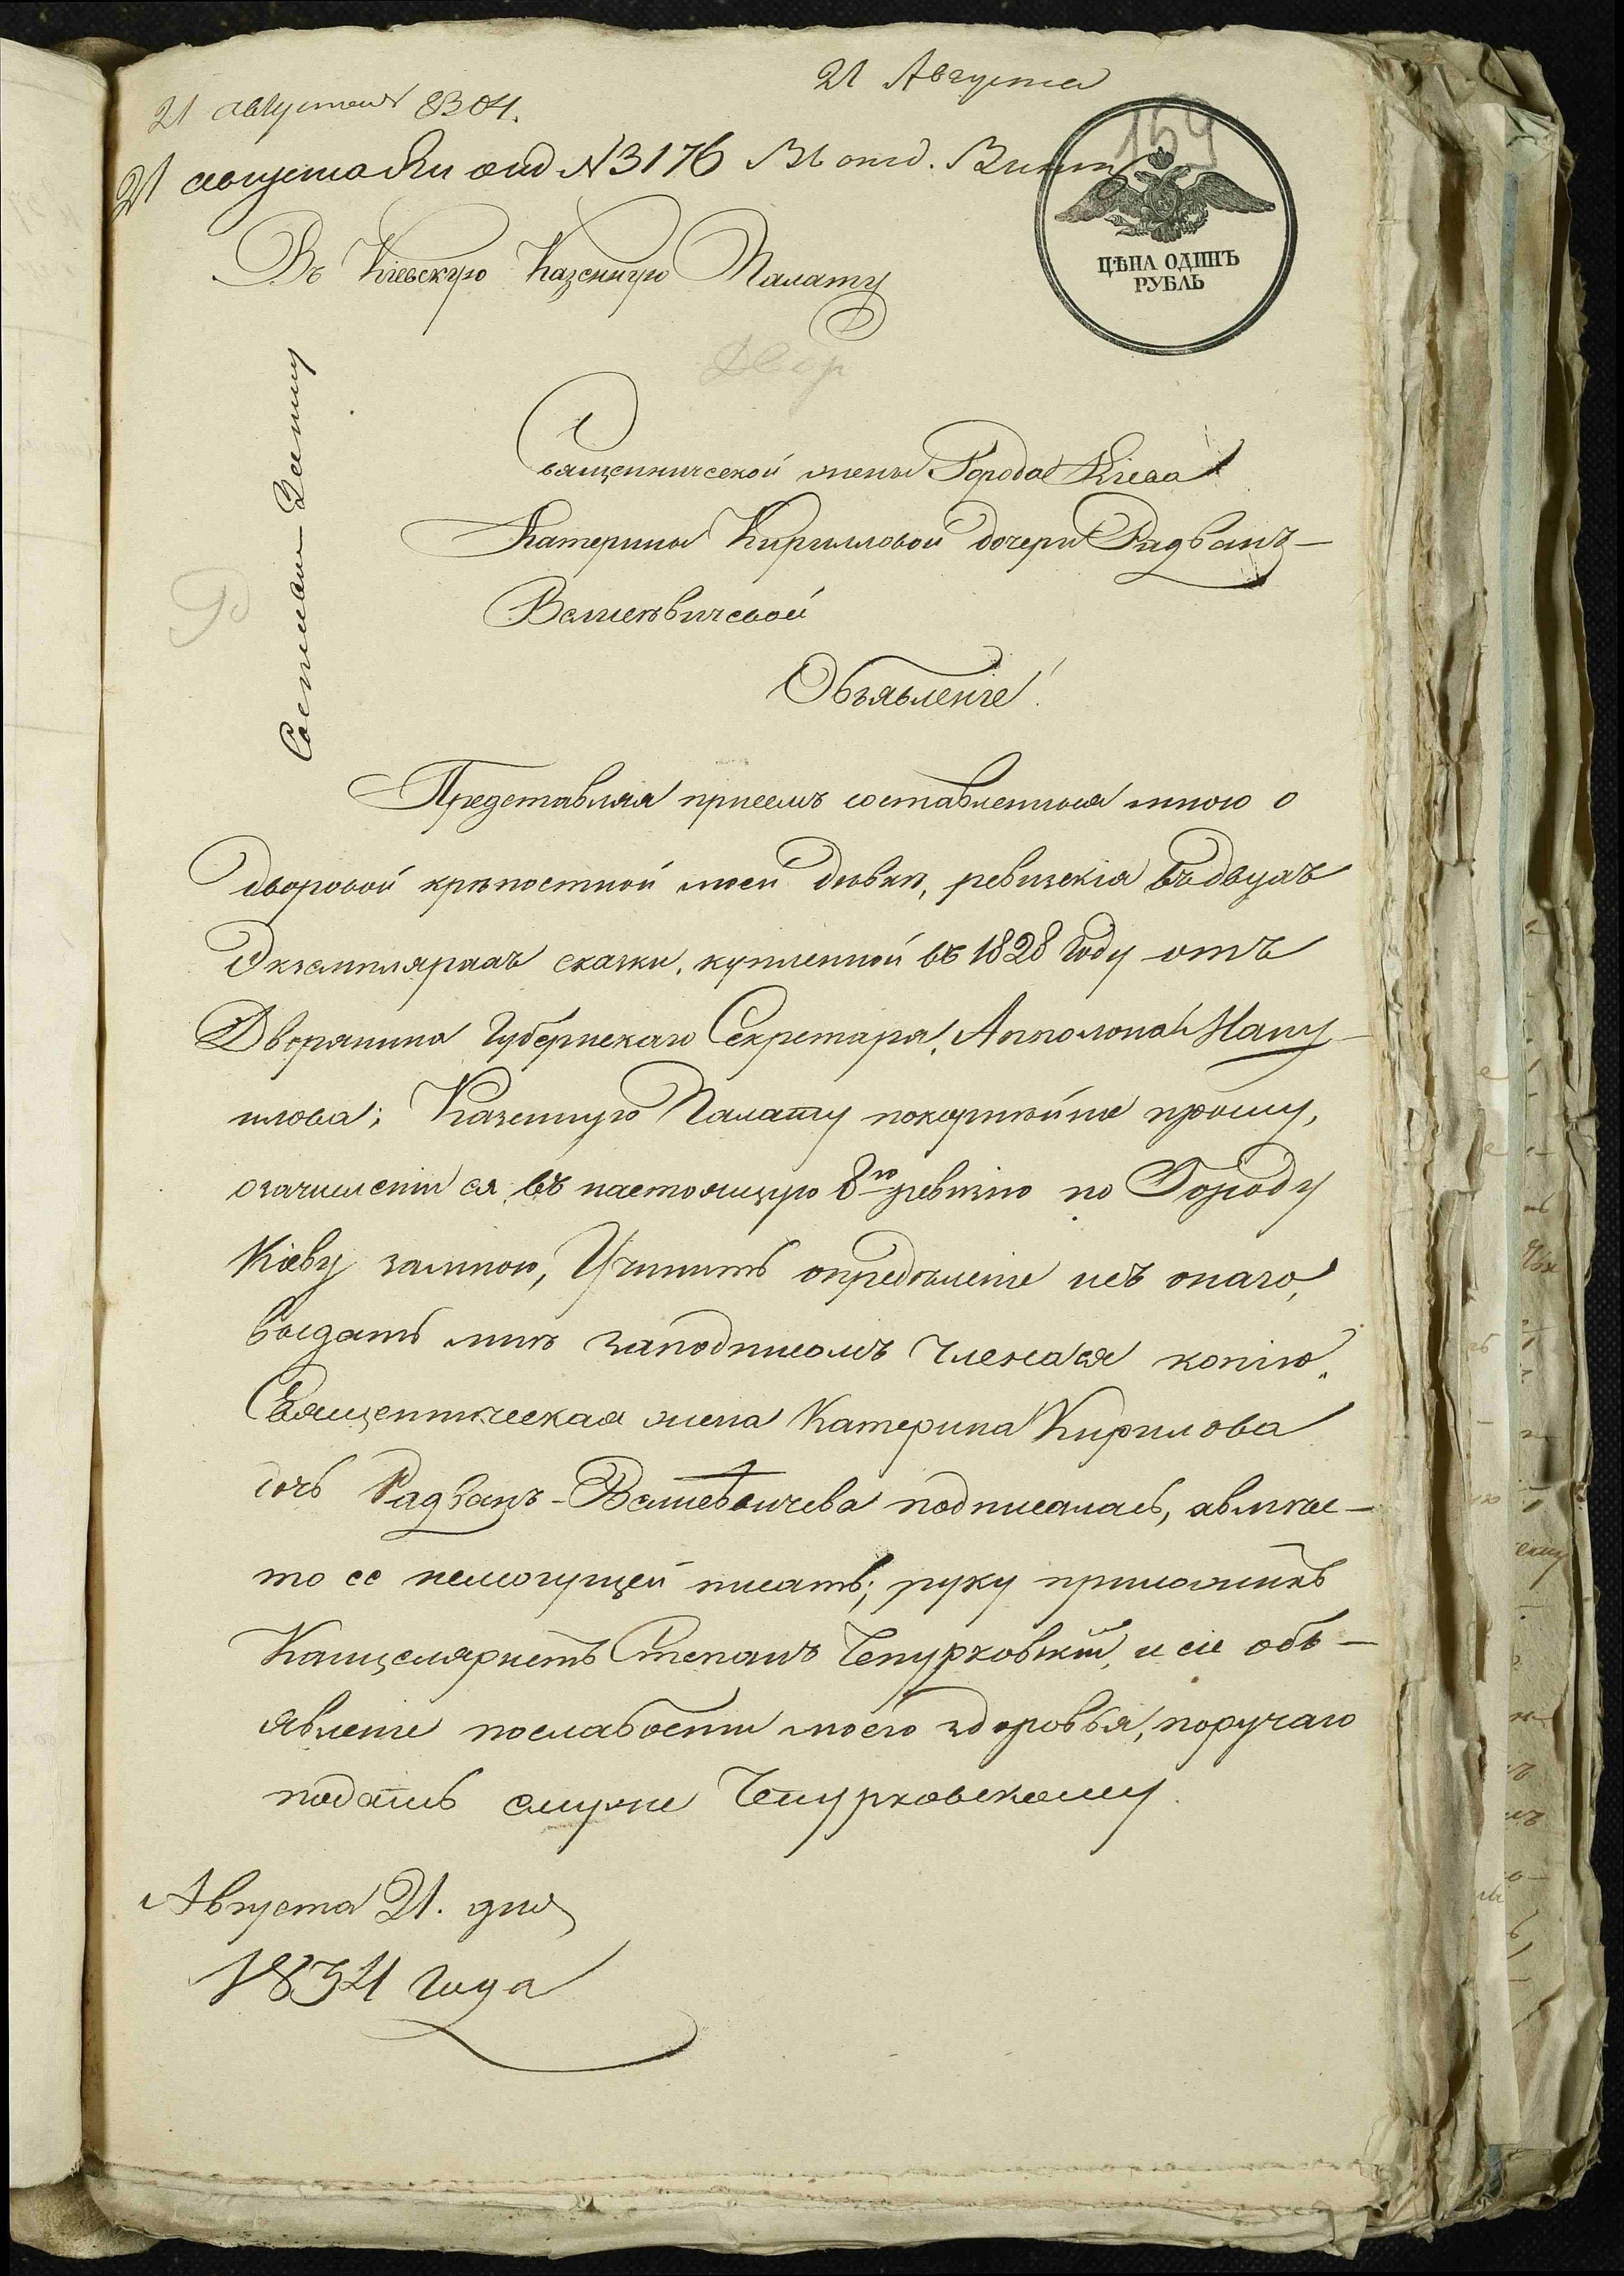 21 Августа
21 августа 834.
21 августа № 3176 Въ отд.
154
ЦѢНА ОДИНЪ
РУБЛЬ
Въ Кіевскую Казенную Палату
Двор
Священической жены Города Кіева
Катерины Кирилловой дочери Радванъ-
Объявленіе
Представляя присемъ составленныя мною о
дворовой крѣпостной моей дѣвки, ревизскія въ двухъ
Экземплярахъ сказки, купленной въ 1828 году отъ
Дворянина Губернскаго Секретаря, Апполона Ману-
илова; Казенную Палату покорнѣйше прошу,
озачисленіи ея въ настоящую 8ю ревизію по Городу
Кіеву замною, Учинить опредѣленіе исъ онаго,
выдать мнѣ заподписомъ Членовъ копію.
Священическая жена Катерина Кирилова
дочь Радванъ- подписалась, авмѣс-
то ее немогущей писать; руку приложилъ
Канцеляристъ Степанъ Чепурковскій, и сіе объ-
явленіе послабости моего здоровья, поручаю
подать Чепурковскому.
Августа 21. дня
1834 года